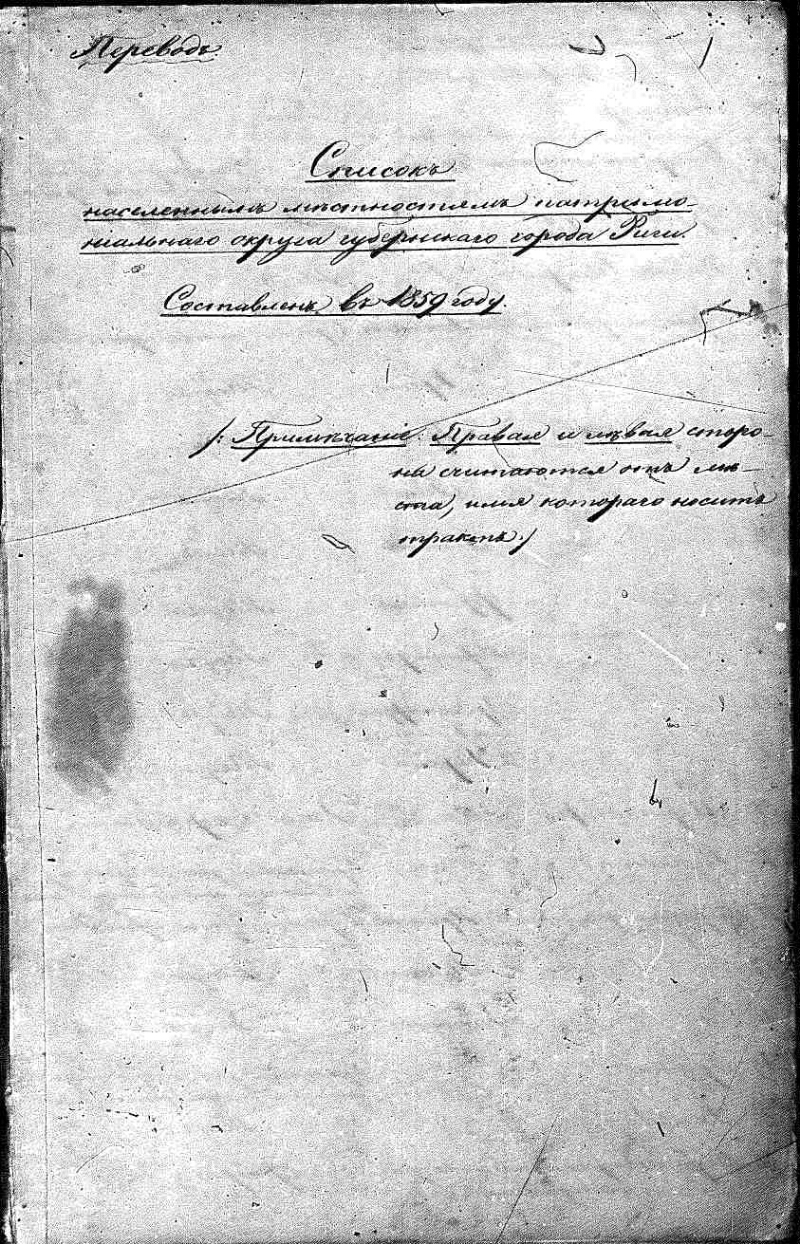 Переводъ
Списокъ
населеннымъ мѣстностямъ патримо-
ніальнаго округа губернскаго города Риги.
Составленъ въ 1859 году.
/: Примѣчаніе. Правая и лѣвая сторо-
на считаются отъ мѣ-
ста, имя котораго носитъ
трактъ./